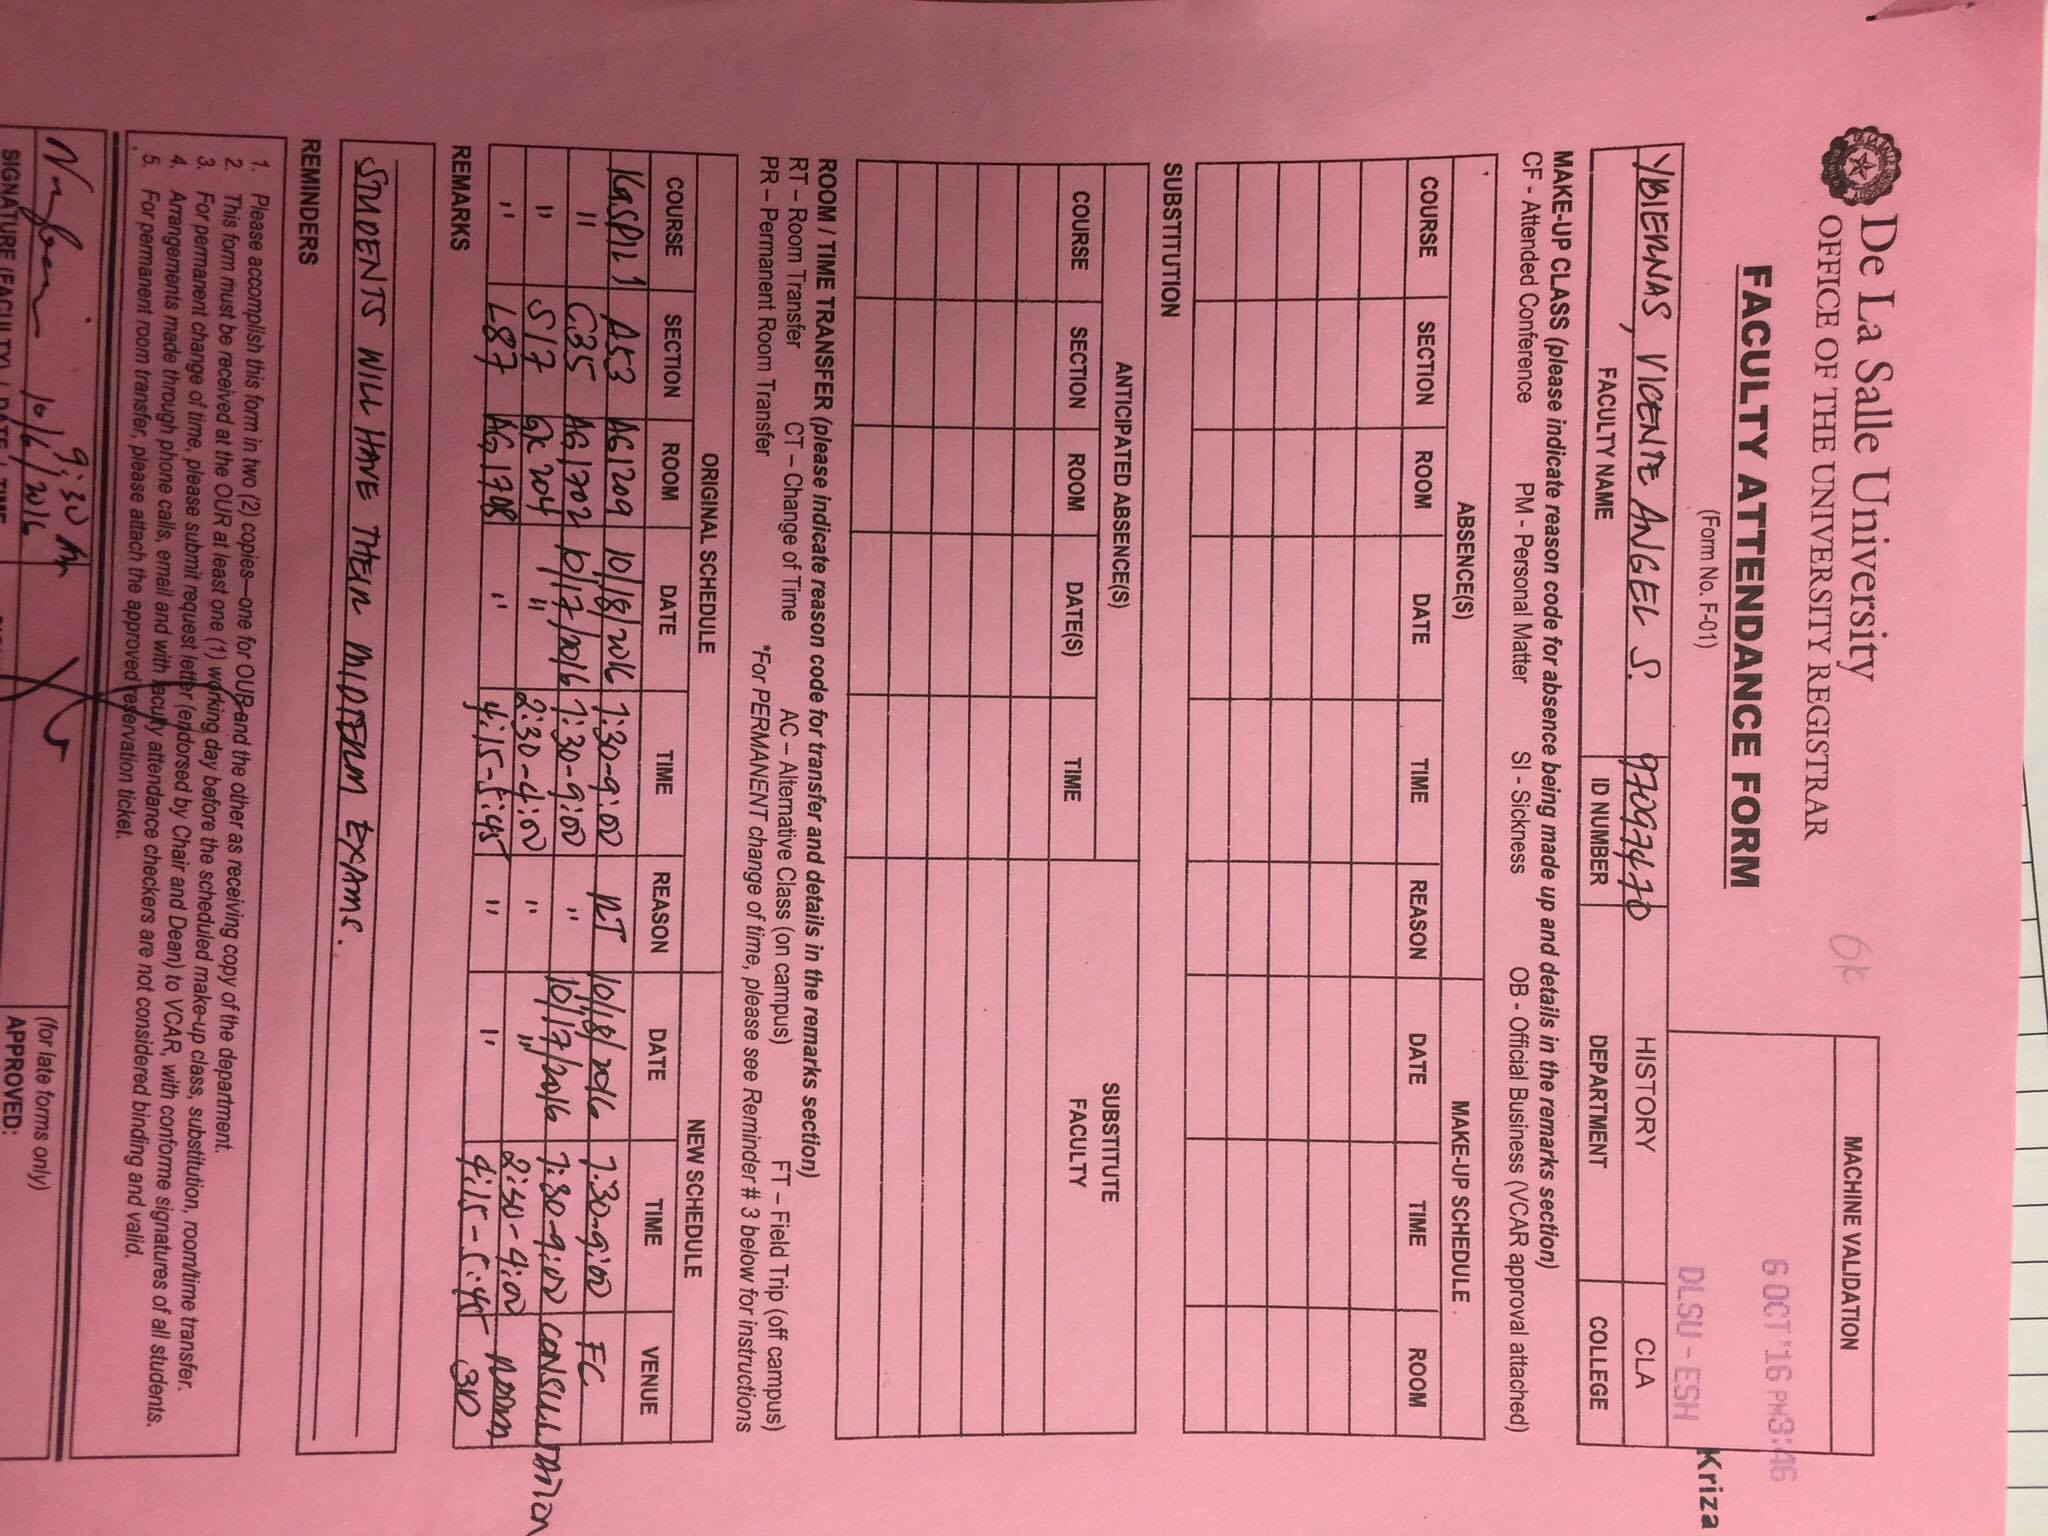 De La Salle University
OFFICE OF THE UNIVERSITY REGISTRAR
OK
MACHINE VALIDATION
6 OCT '16 PM 3:46
Kriza
DLSU - ESH
FACULTY ATTENDANCE FORM
(Form No. F-01)
YBIERNAS, VICENTE ANGEL S. 97097470 HISTORY CLA
FACULTY NAME ID NUMBER DEPARTMENT COLLEGE
MAKE-UP CLASS (please indicate reason code for absence being made up and details in the remarks section)
CF - Attended Conference PM - Personal Matter SI - Sickness OB - Official Business (VCAR approval attached)
ABSENCE(S) MAKE-UP SCHEDULE
COURSE SECTION ROOM DATE TIME REASON DATE TIME ROOM
SUBSTITUTION
ANTICIPATED ABSENCE(S) SUBSTITUTE FACULTY
COURSE SECTION ROOM DATE(S) TIME
ROOM / TIME TRANSFER (please indicate reason code for transfer and details in the remarks section)
RT – Room Transfer CT – Change of Time AC – Alternative Class (on campus) FT – Field Trip (off campus)
PR – Permanent Room Transfer *For PERMANENT change of time, please see Reminder # 3 below for instructions
ORIGINAL SCHEDULE NEW SCHEDULE
COURSE SECTION ROOM DATE TIME REASON DATE TIME VENUE
KASPIL 1 A53 AG1209 10/18/2016 7:30-9:00 RT 10/18/2016 7:30-9:00 FC
" C35 AG1702 10/17/2016 7:30-9:00 " 10/17/2016 7:30-9:00 CONSULTATION
" S17 GK204 " 2:30-4:00 " " 2:30-4:00 ROOM
" L87 AG1708 " 4:15-5:45 " " 4:15-5:45 3D
REMARKS
STUDENTS WILL HAVE THEIR MIDTERM EXAMS.
REMINDERS
1. Please accomplish this form in two (2) copies—one for OUR and the other as receiving copy of the department.
2. This form must be received at the OUR at least one (1) working day before the scheduled make-up class, substitution, room/time transfer.
3. For permanent change of time, please submit request letter (endorsed by Chair and Dean) to VCAR, with conforme signatures of all students.
4. Arrangements made through phone calls, email and with faculty attendance checkers are not considered binding and valid.
5. For permanent room transfer, please attach the approved reservation ticket.
9:30 AM
10/6/2016
(for late forms only)
APPROVED:
SIGNATURE (FACULTY) / DATE / TIME